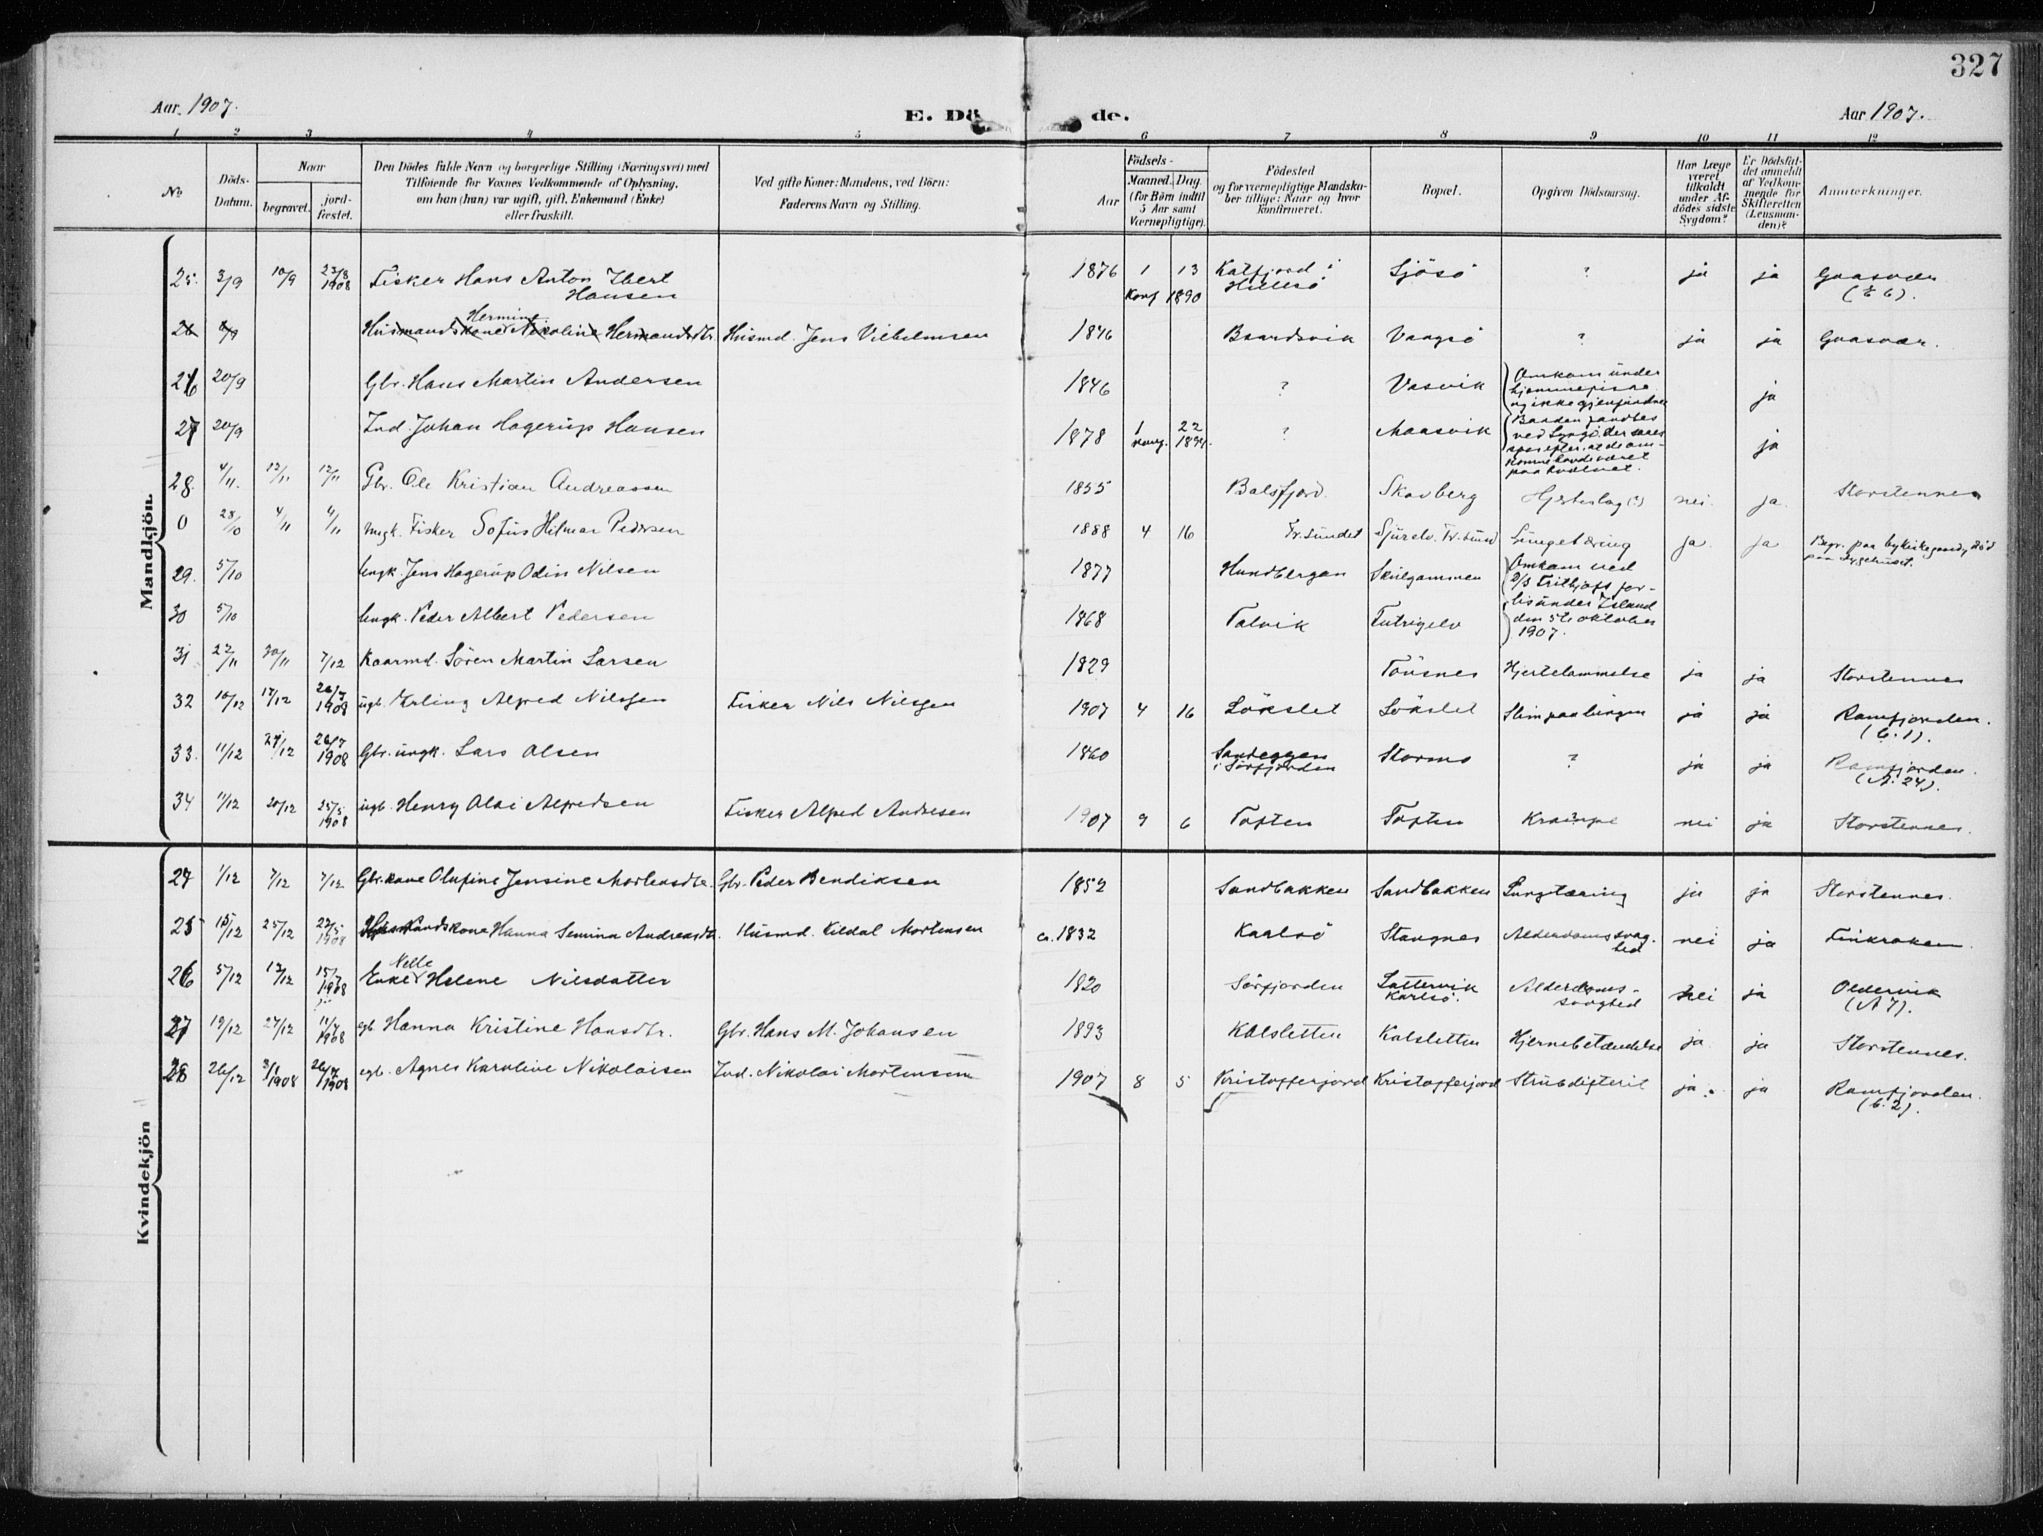 327
Aar 1907.
E. Dö de.
Aar 1907.
1 2 3 4 5 6 7 8 9 10 11 12
No
Döds-
Datum.
Naar
begravet.
jord-
fæstet.
Den Dödes fulde Navn og borgerlige Stilling (Næringsvei) med
Tilföiende for Voxnes Vedkommende af Oplysning,
om han (hun) var ugift, gift, Enkemand (Enke)
eller fraskilt.
Ved gifte Koner: Mandens, ved Börn:
Faderens Navn og Stilling.
Födsels-
Aar
Maaned. Dag.
(for Börn indtil
5 Aar samt
Værnepligtige).
Födested
og for værnepligtige Mandska-
ber tillige: Naar og hvor
konfirmeret.
Bopæl.
Opgiven Dödsaarsag.
Har Læge
været
tilkaldt
under Af-
dödes sidste
Sygdom?
Er Dödsfal-
det anmeldt
af Vedkom-
mende for
Skifteretten
(Lensman-
den)?
Anmærkninger.
Mandkjön.
25. 3/9 10/9 23/8 1908 Fisker Hans Anton Ibert Hansen 1876 1 13 Konf 1890 Katfjord i Hillesö Sjösö ? ja ja Gaasvær
26 8/9 Husmandskone Hermine Nikoline Hermandsdtr. Husmd. Jens Vilhelmsen 1846 Baardsvik Vangsö ? ja ja Gaasvær.
26 20/9 Gbr. Hans Martin Andersen 1846 ? Vasvik Omkom under hjemmefiske og ikke gjenfundne ja
27 20/9 Ind. Johan Hagerup Hansen 1878 1 22 1894. ? Maasvik Baaden fandtes ja
28. 4/11. 12/11 12/11 Gbr. Ole Kristian Andreassen 1855 Balsfjord. Skavberg Hjerteslag (?) nei. ja. Storstennes
0 28/10 4/11 4/11 ungk. Fisker Sofus Hilmar Pedersen 1888 4 16 Tr. sundet Sjurelv. Tr. sund Lungetæring ja. ja Begr. paa bykirkegaard, död paa Sygehuset.
29. 5/10 Ungk. Jens Hagerup Odin Nilsen 1877 Hundbergan Skulgammen Omkom ved D/S Frithjofs for-
30 5/10 Ungk. Peder Albert Pedersen 1868 Talvik Futrigelv lis under Island den 5te oktober 1907.
31 22/11 30/11 7/12 Kaarmd. Sören Martin Larsen 1829 Tönsnes Hjertelammelse ja ja Storstennes
32 10/12 17/12 26/7 1908 ugb. Erling Alfred Nilssen Fisker Nils Nilssen 1907 4 16 Lökslet Lökslet Slim paa lungen ja ja Ramfjorden. (6.1).
33. 11/12 27/12 26/7 1908 Gbr. ungk. Lars Olsen 1860 Sandeggen i Sörfjorden Stormo ? ja ja Ramfjorden. (A. 24).
34 11/12 20/12 25/5 1908 ugb. Henry Olai Alfredsen Fisker Alfred Andresen 1907 9 6 Toften Toften Krampe nei ja Storstennes.
Kvindekjön
24 1/12 7/12 7/12 Gbr.kone Olufine Jensine Mortensdtr. Gbr. Peder Bendiksen 1852 Sandbakken Sandbakken Lungetæring ja ja Storstennes.
25 15/12 25/12 22/5 1908 Husmandskone Hanna Semina Andreasdtr. Husmd. Kildal Mortensen ca. 1832 Karlsö Stangnes Alderdomssvaghed nei ja Finkroken.
26 5/12 12/12 15/7 1908 Enke Nelle Helene Nilsdatter 1820 Sörfjorden Lattervik Karlsö. Alderdoms-svaghed nei ja Oldervik (A 7).
27 19/12 27/12 11/7 1908 egb. Hanna Kristine Hansdtr. Gbr. Hans M. Johansen 1893 Kalsletten Kalsletten Hjernebetændelse ja. ja Storstennes.
28 26/12 3/1 1908 26/7 1908 egb. Agnes Karoline Nikolaisen Ind. Nikolai Mortensen 1907 8 5 Kristofferjord Kristofferjord Strubdifterit ja. ja Ramfjorden. (6.2).